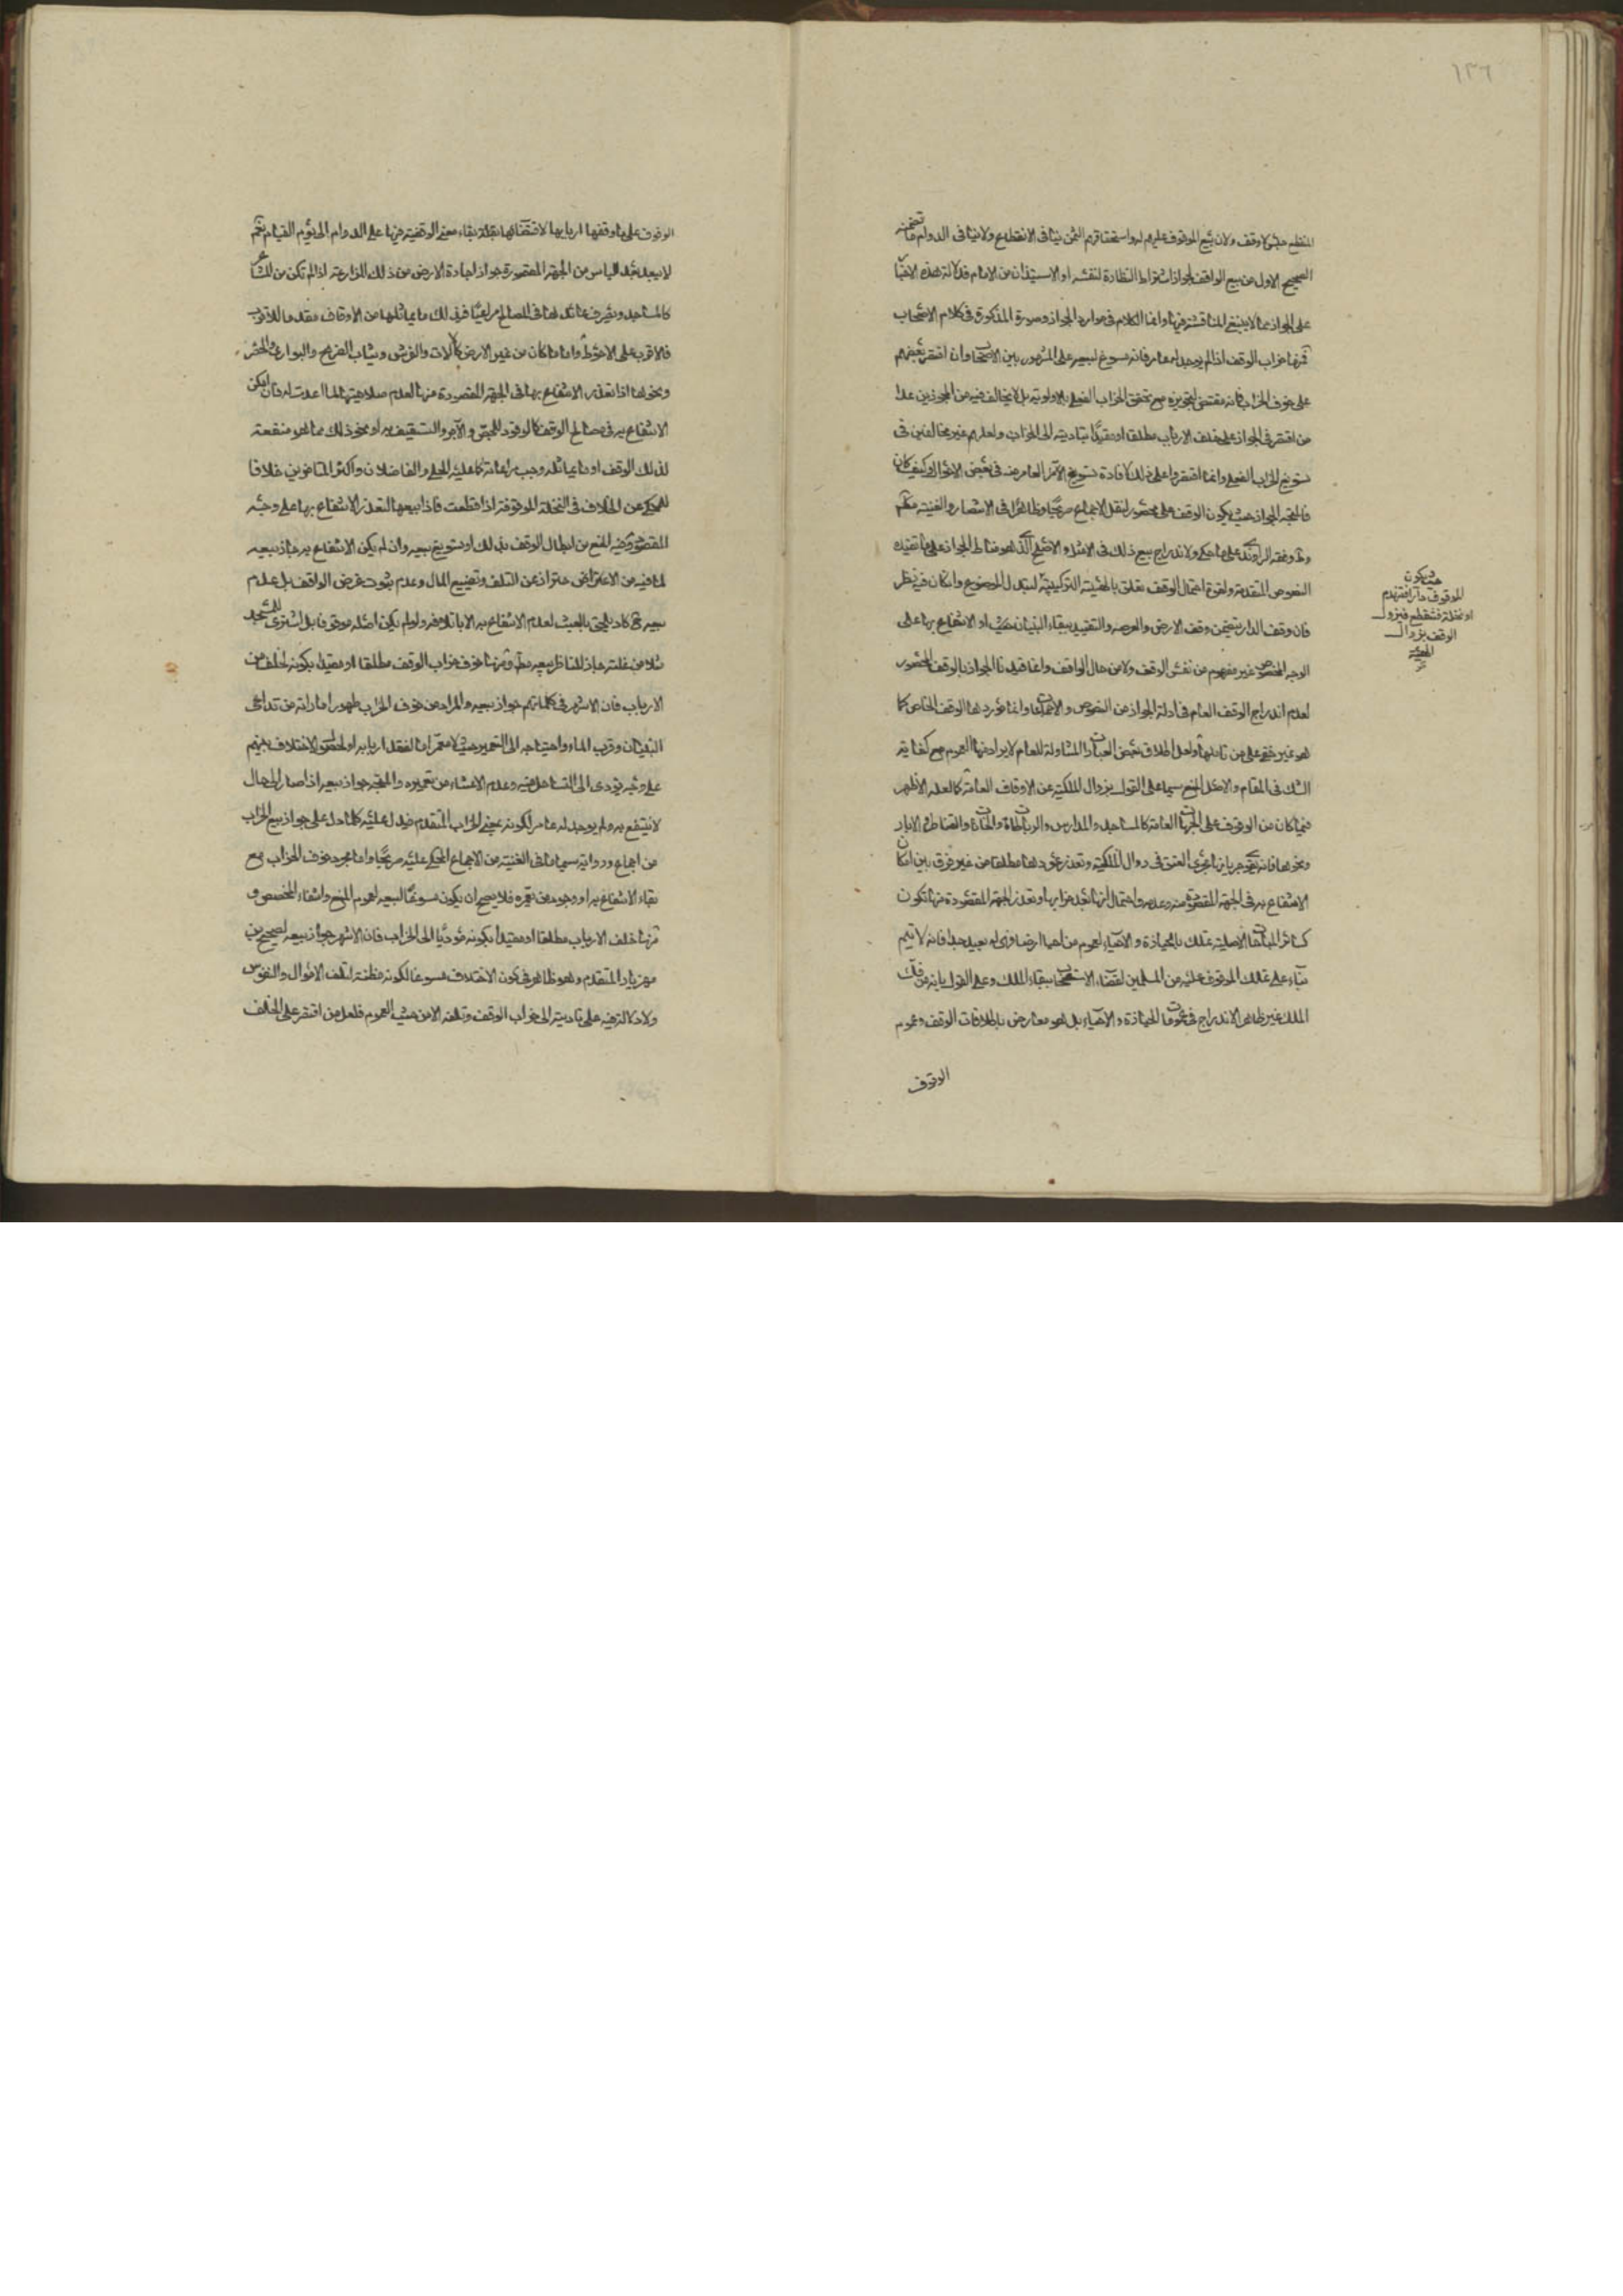 ١٣٦
المنقطع حبس لا وقف ولان بيع الموقوف عليهم له واستحقاقهم الثمن ينافى الانقطاع ولا ينافى الدوام ما تضمنه
الصحيح الاول من بيع الواقف لجواز اشتراط النظارة لنفسه او الاستيذان من الامام فدلالة هذه الاخبار
على الجواز مما لا ينبغى المناقشة فيها وانما الكلام فى موارد الجواز وصوره المذكورة فى كلام الاصحاب
فمنها خراب الوقف اذا لم يوجد له عامر فانه مسوغ لبيعه على المشهور بين الاصحاب وان اقتصر بعضهم
على خوف الخراب فانه مقتضى لتجويزه مع تحقق الخراب الفعلى بالاولوية بل لا يخالف فيه من المجوزين عدا
من اقتصر فى الجواز على خلف الارباب مطلقا او مقيدا بتاديته الى الخراب ولعلهم غير مخالفين فى
تسويغ الخراب الفعلى وانما اقتصروا على ذلك لافادة تسويغ الامر العارض فى بعض الاحوال وكيف كان
فالمتجه الجواز حيث يكون الوقف على محصور لنقل الاجماع صريحا وظاهرا فى الانتصار والغنية
وفقه الراوندى على ما حكى ولاندراج بيع ذلك فى الامثل والاصلح الذى هو مناط الجواز على ما تفيده
النصوص المتقدمة ولقوة احتمال الوقف تعلق بالهيئة التركيبية لتبدل الموضوع وان كان فيه نظر
فان وقف الدار يتضمن وقف الارض والعرصة والتقييد ببقاء البنيان بحيث او الانتفاع بها على
الوجه المخصوص غير مفهوم من نفس الوقف ولا من حال الواقف وانما قيدنا الجواز بالوقف المحصور
لعدم اندراج الوقف العام فى ادلة الجواز من النصوص والاجماعات وانما موردها الوقف الخاص كما
هو غير خفى على من تاملها ولعل اطلاق بعض العبارات المتناولة للعام لا يراد منها العموم مع كفاية
الشك فى المقام والاصل المنع سيما على القول بزوال الملكية عن الاوقاف العامة كما لعله الاظهر
فيما كان من الوقوف على الجهات العامة كالمساجد والمدارس والرباطات والخانات والقناطر والابار
ونحوها فانه يجرى بها مجرى العتق فى زوال الملكية وتعذر عودها مطلقا من غير فرق بين امكان
الانتفاع به فى الجهة المقصودة منه وعدمه واحتمال انها بعد خرابها وتعذر الجهة المقصودة منها تكون
كسائر المباحات الاصلية تملك بالحيازة والاحياء لعموم من احيا ارضا فهى له بعيد جدا فانه لا يتم
بناء على تملك الموقوف عليه من المسلمين لقضاء الاستصحاب ببقاء الملك وعلى القول بانه من فك
الملك غير ظاهر الاندراج فى عمومات الحيازة والاحياء بل هو معارض باطلاقات الوقف وعموم
الوقوف
حيث يكون
الموقوف دارا فتنهدم
او نخلة فتنقطع فيزول
الوقف بزوال
الهيئة
الوقوف على ما وقفها اربابها لاقتضائها بقاء معنى الوقفية فيها على الدوام الى يوم القيام نعم
لا يبعد عند الياس من الجهة المقصورة جواز اجارة الارض من ذلك للزارعة اذا لم تكن من المشاعر
كالمساجد ويصرف عائد لها فى المصالح مراعيا فى ذلك ما يماثلها من الاوقاف مقدما للاقرب
فالاقرب على الاحوط واما ما كان من غير الارض كالالات والفرش وثياب الضريح والبوارى والحصر
ونحوها اذا تعذر الانتفاع بها فى الجهة المقصودة منها لعدم صلاحيتها لما اعدت له فان امكن
الانتفاع به فى مصالح الوقف كالوقود للجص والآجر والتسقيف به او نحو ذلك مما هو منفعة
لذلك الوقف او ما يماثله وجب مراعاته كما عليه الحلى والفاضلان واكثر المتاخرين خلافا
للمحكى عن الخلاف فى النخلة الموقوفة اذا قطعت فاذا بيعها لتعذر الانتفاع بها على وجه
المقصود وفيه المنع من ابطال الوقف بذلك او تسويغ بيعه وان لم يكن الانتفاع به جاز بيعه
لما فيه من الاعتراض احترازا عن التلف وتضييع المال وعدم ثبوت غرض الواقف بل عدم
بيعه كاد يلحق بالعبث لعدم الانتفاع به الا باتلافه ولو لم يكن اصله موقوفا بل اشترى للمسجد
مثلا من غلته جاز للناظر بيعه ومنها خوف خراب الوقف مطلقا او مقيدا بكونه لخلف من
الارباب فان الاشهر فى كلماتهم جواز بيعه والمراد من خوف الخراب ظهور اماراته من تداعى
البنيان وقرب الماء واحتياجه الى التعمير حيث لا معمر اما لفقد اربابه او لحصول الاختلاف بينهم
على وجه يؤدى الى التساهل فيه وعدم الاعتناء من تعميره والمتجه جواز بيعه اذا صار الى حال
لا ينتفع به ولم يوجد له عامر لكونه بمعنى الخراب المتقدم فيدل عليه كلما دل على جواز بيع الخراب
من اجماع ورواية سيما ما فى الغنية من الاجماع المحكى عليه صريحا واما مجرد خوف الخراب مع
بقاء الانتفاع به او وجود من يعمره فلا يصح ان يكون مسوغا لبيعه لعموم المنع وانتفاء المخصص و
منها خلف الارباب مطلقا او مقيدا بكونه مؤديا الى الخراب فان الاشهر جواز بيعه لصحيح بن
مهزيار المتقدم وهو ظاهر فى كون الاختلاف مسوغا لكونه مظنة لتلف الاموال والنفوس
ولا دلالة فيه على تاديته الى خراب الوقف وتلفه الا من حيث العموم فلعل من اقتصر على الخلف